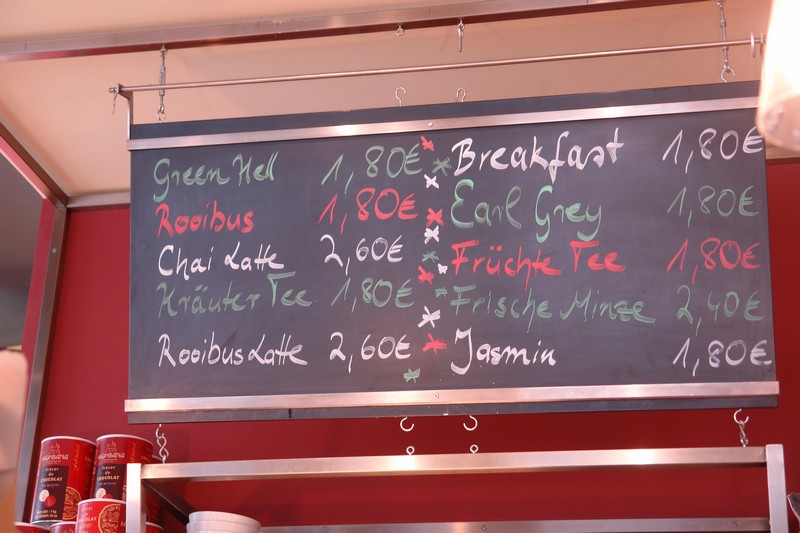 Green Hell 1,80€
Rooibus 1,80€
Chai Latte 2,60€
Kräuter Tee 1,80€
Rooibus Latte 2,60€
Breakfast 1,80€
Earl Grey 1,80€
Früchte Tee 1,80€
Frische Minze 2,40€
Jasmin 1,80€
Trésor de
CHOCOLAT
Trésor de
CHOCOLAT
CHOCOLAT